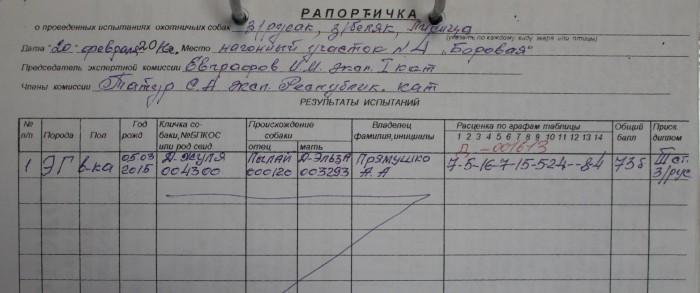 РАПОРТИЧКА
о проведенных испытаниях охотничьих собак з/русак, з/беляк, лисица
(указать по каждому виду зверя или птицы)
Дата "20" февраля 20 г. Место нагонный участок №4 "Боровая"
Председатель экспертной комиссии Евграфов И.М. эксп. I кат
Члены комиссии Татур С.А. эксп. Республик. кат
РЕЗУЛЬТАТЫ ИСПЫТАНИЙ
№ п/п Порода Пол Год рожд Кличка собаки,№БПКОС или род свид. Происхождение собаки отец мать Владелец фамилия,инициалы Расценка по графам таблицы 1 2 3 4 5 6 7 8 9 10 11 12 13 14 Общий балл Присв. диплом
Д-001613
1 ЭГ в-ка 05.03 2015 Д-Жуля 004300 Пылай 000120 Д-Эльза 003293 Прямушко А.А 7-5-16-7-15-5-2-4--8-4 73б III ст. з/рус